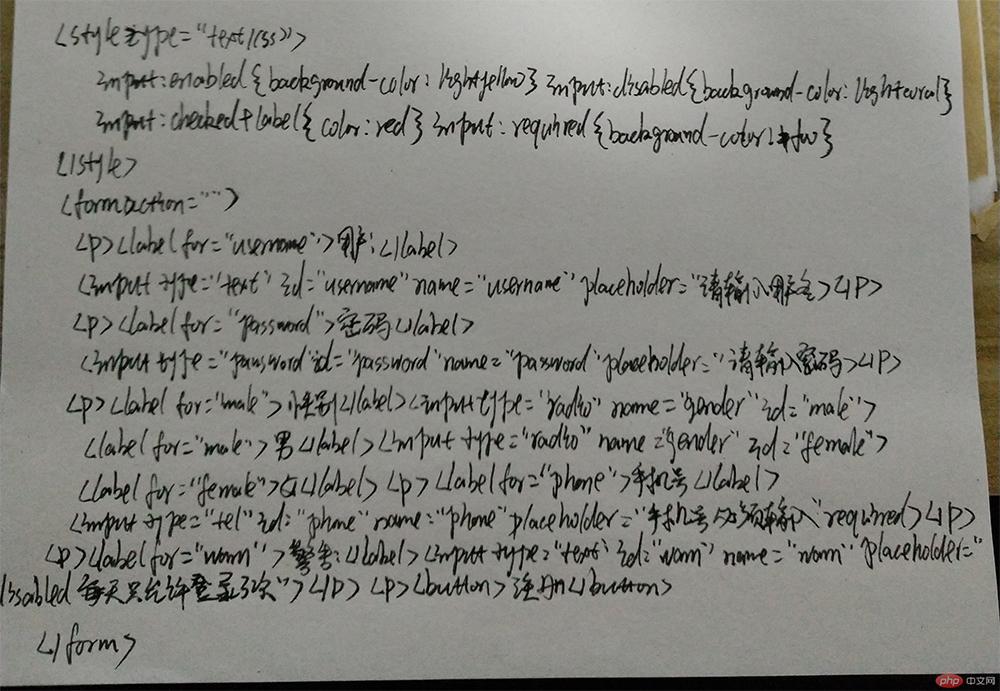 <style type="text/css">
input:enabled{background-color:lightyellow} input:disabled{background-color:lightcoral}
input:checked+label{color:red} input:required{background-color:
</style>
<form action="">
<p><label for="username">用户:</label>
<input type="text" id="username" name="username" placeholder="请输入用户名></p>
<p><label for="password">密码</label>
<input type="password" id="password" name="password" placeholder="请输入密码></p>
<p><label for="male">性别</label><input type="radio" name="gender" id="male">
<label for="male">男</label><input type="radio" name="gender" id="female">
<label for="female">女</label> <p> <label for="phone">手机号</label>
<input type="tel" id="phone" name="phone" placeholder="手机号必须输入" required></p>
<p><label for="warn">警告:</label><input type="text" id="warn" name="warn" placeholder="
disabled 每天只允许登录3次"></p> <p><button>注册</button>
</form>
php 中文网